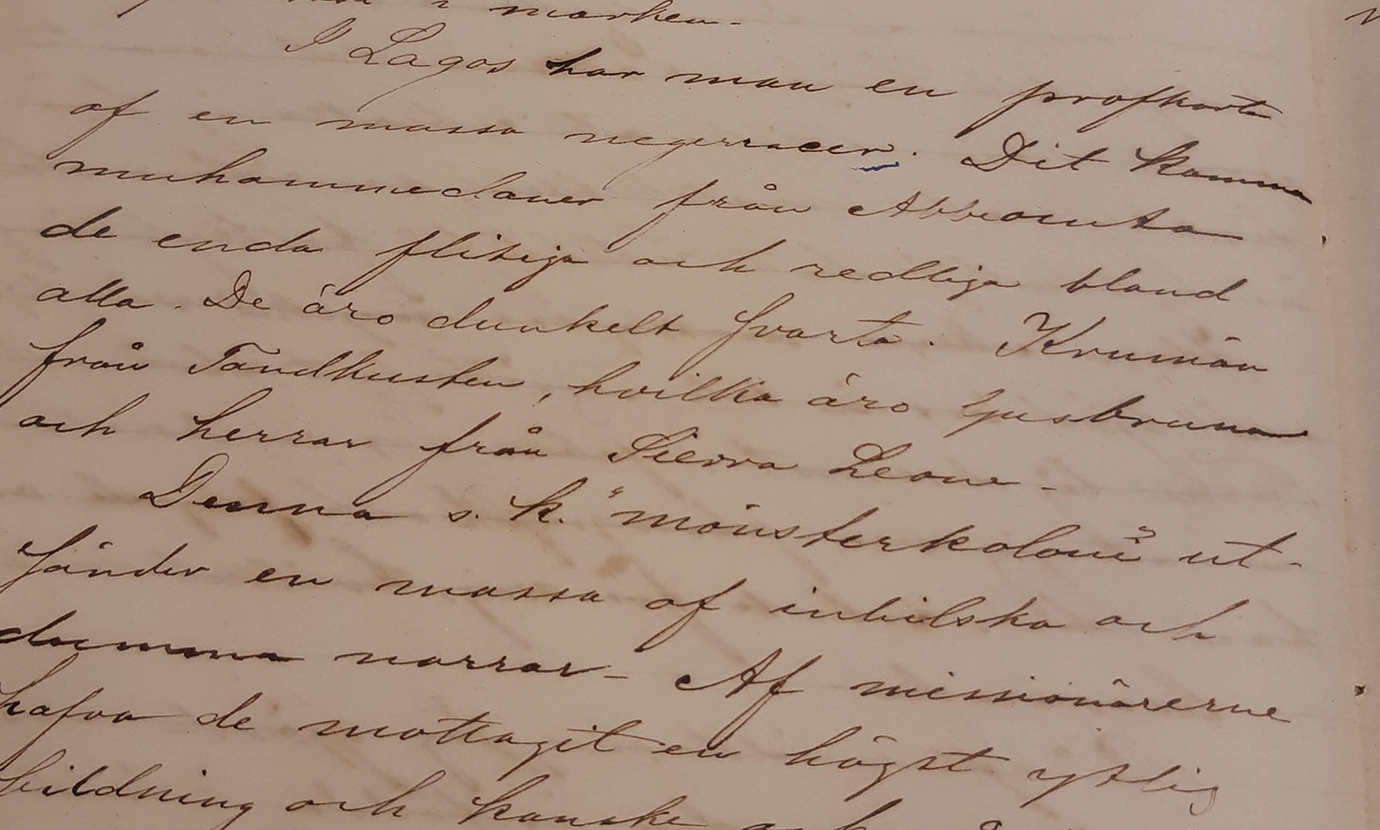 i marken.
I Lagos har man en profkarta
af en massa negerracer. Dit komma
muhammedaner från Abbeomta
de enda flitiga och redliga bland
alla. De äro dunkelt svarta. Krumän
från Tandkusten, hvilka äro ljusbruna
och herrar från Sierra Leone.
Denna s. k. "mönsterkoloni" ut-
sänder en massa af inbilska och
dumma narrar. Af missionärerne
hafva de mottagit en högst ytlig
bildning och kanske